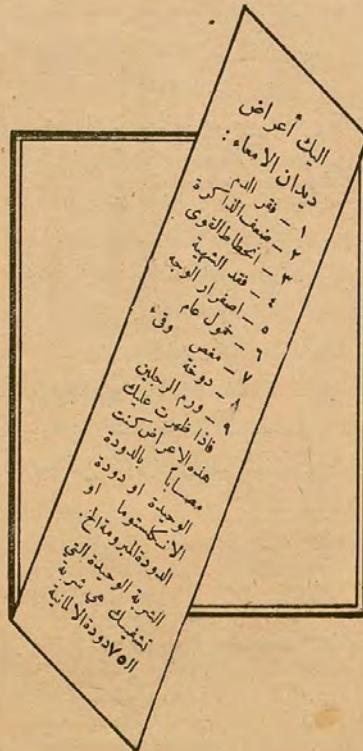 اليك أعراض
ديدان الامعاء :
١ – فقر الدم
٢ – ضعف الذاكرة
٣ – انحطاط القوى
٤ – فقد الشهية
٥ – اصفرار الوجه
٦ – خمول عام
٧ – مغص وقيء
٨ – دوخة
٩ – ورم الرجلين
فاذا ظهرت عليك
هذه الاعراض كنت
مصاباً بالدودة
الوحيدة او دودة
الانكلستوما او
الدودة المبرومة الخ .
الشربة الوحيدة التي
تشفيك هي شربة
الـ ٧٥ دودة الالمانية